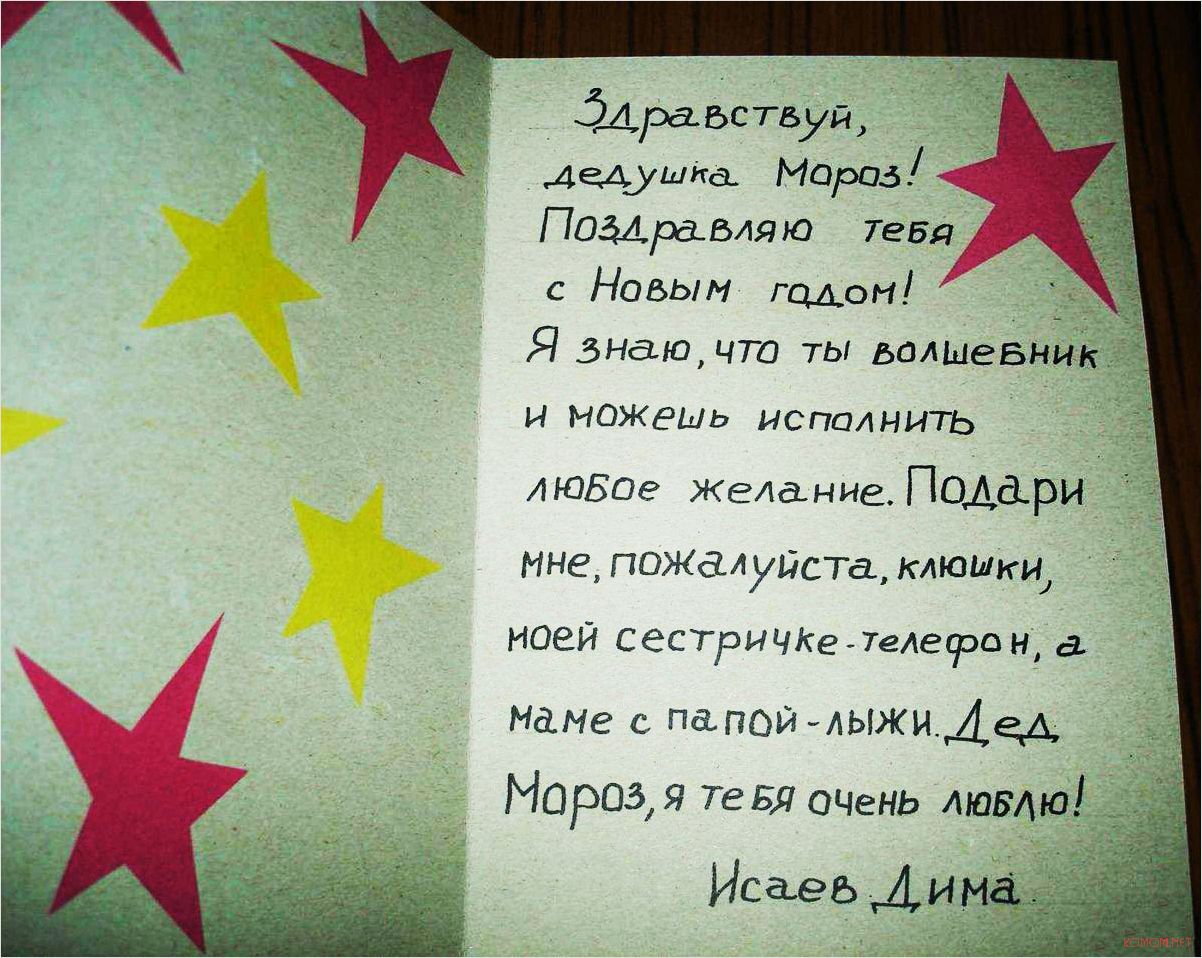 Здравствуй,
дедушка Мороз!
Поздравляю тебя
с Новым годом!
Я знаю, что ты волшебник
и можешь исполнить
любое желание. Подари
мне, пожалуйста, клюшки,
моей сестричке-телефон, а
маме с папой-лыжи. Дед
Мороз, я тебя очень люблю!
Исаев Дима